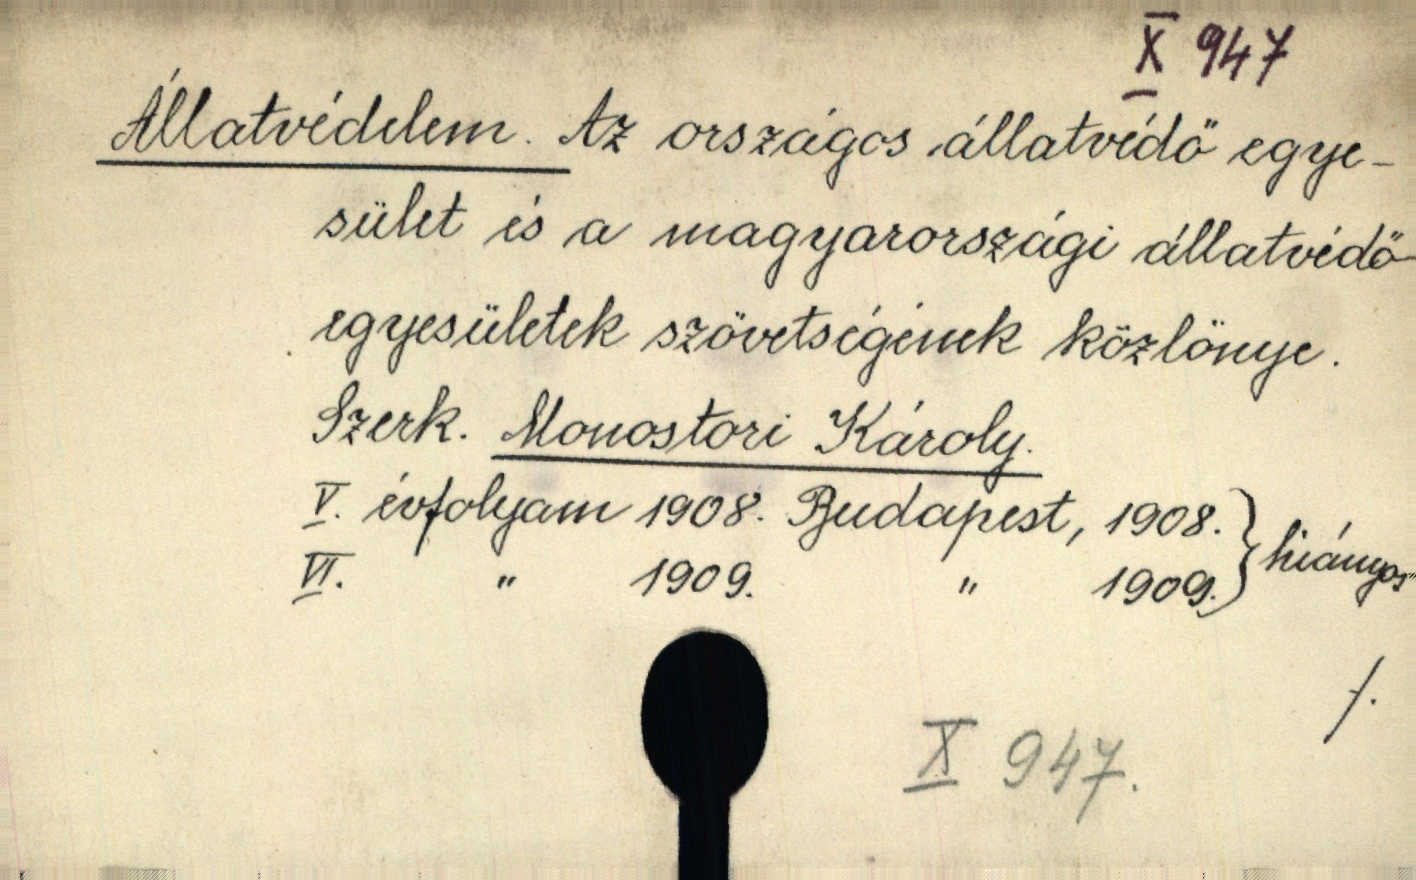 X 947
Állatvédelem. Az országos állatvédő egye-
sület és a magyarországi állatvédő-
egyesületek szövetségének közlönye.
Szerk. Monostori Károly.
V. évfolyam 1908. Budapest, 1908. } hiányos
VI. " 1909. " 1909.
X 947.